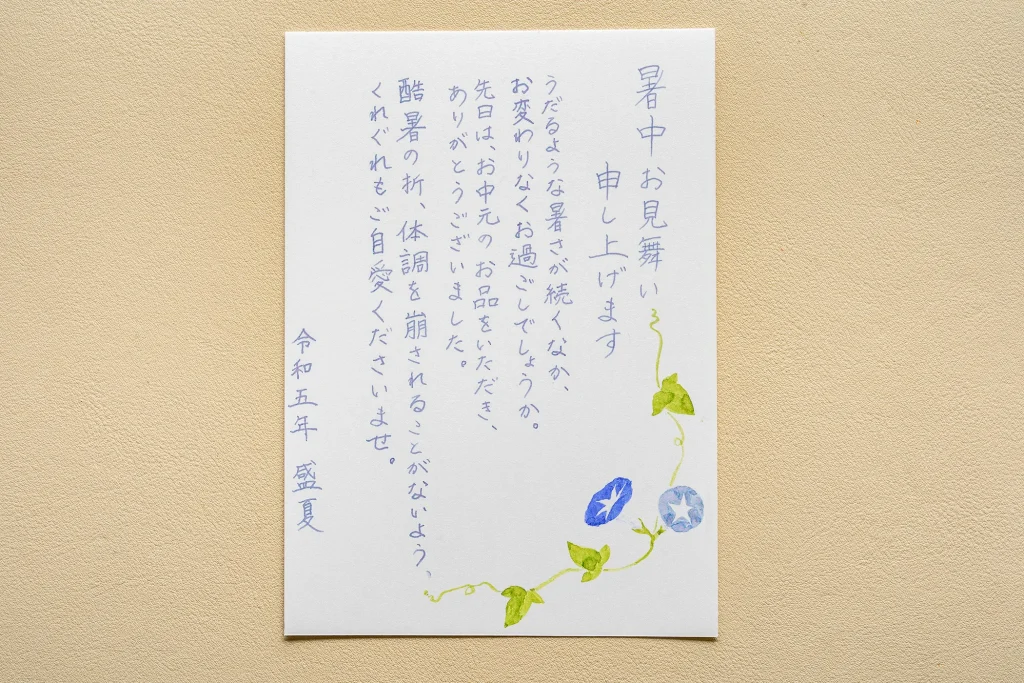 暑中お見舞い
申し上げます
うだるような暑さが続くなか、
お変わりなくお過ごしでしょうか。
先日は、お中元のお品をいただき、
ありがとうございました。
酷暑の折、体調を崩されることがないよう、
くれぐれもご自愛くださいませ。
令和五年 盛夏